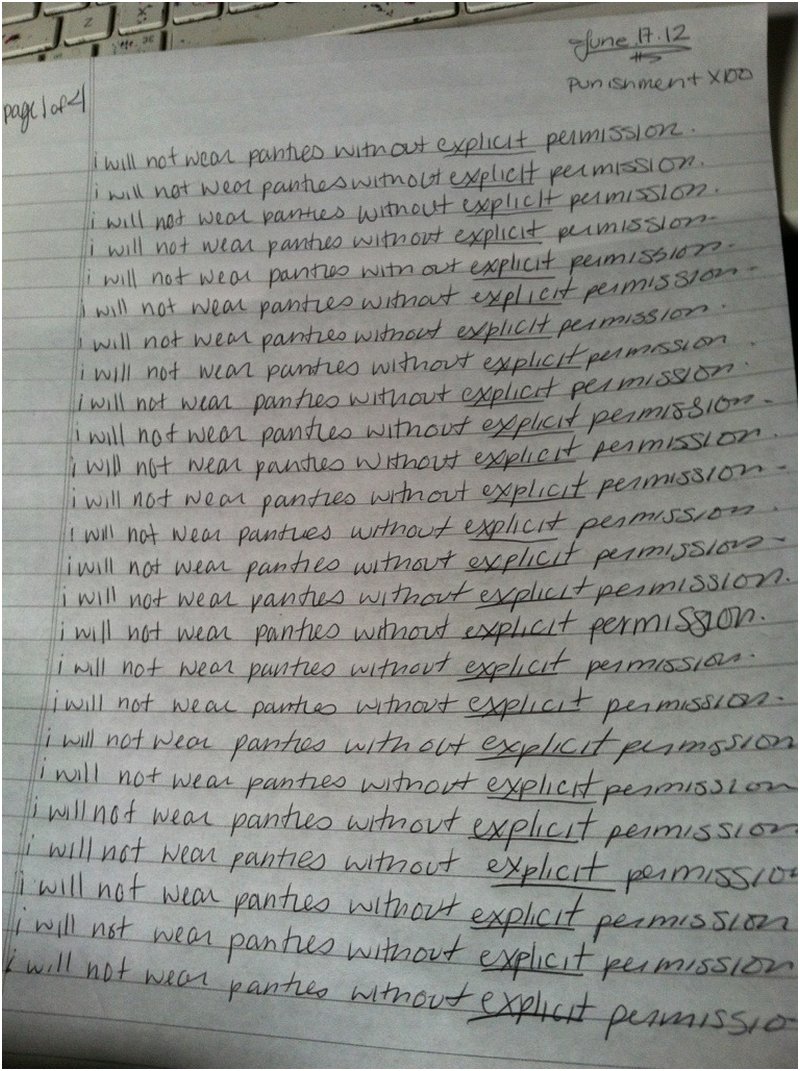 June.17.12
punishment x100
page 1 of 4
i will not wear panties without explicit permission.
i will not wear panties without explicit permission.
i will not wear panties without explicit permission.
i will not wear panties without explicit permission.
i will not wear panties without explicit permission.
i will not wear panties without explicit permission.
i will not wear panties without explicit permission.
i will not wear panties without explicit permission
i will not wear panties without explicit permission.
i will not wear panties without explicit permission.
i will not wear panties without explicit permission.
i will not wear panties without explicit permission.
i will not wear panties without explicit permission.
i will not wear panties without explicit permission.
i will not wear panties without explicit permission.
i will not wear panties without explicit permission.
i will not wear panties without explicit permission.
i will not wear panties without explicit permission.
i will not wear panties without explicit permission
i will not wear panties without explicit permission
i will not wear panties without explicit permission
i will not wear panties without explicit permission
i will not wear panties without explicit permission
i will not wear panties without explicit permission
i will not wear panties without explicit permissio